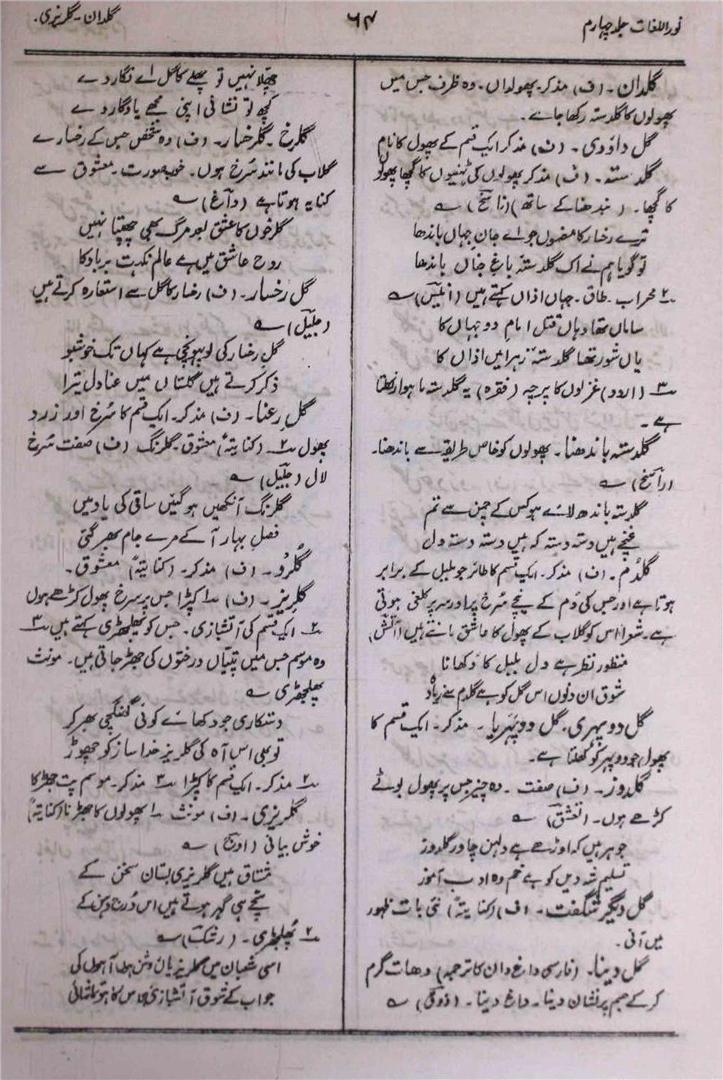 نور اللغات جلد چہارم
۶۴
گلدان - گلریزی۔
گلدان۔ (ف) مذکر۔ پھولداں۔ وہ ظرف جس میں
پھولوں کا گلدستہ رکھا جائے۔
گل داؤدی۔ (ف) مذکر ایک قسم کے پھول کا نام
گلدستہ۔ (ف) مذکر پھولوں کی ٹہنیوں کا گچھا پھولوں
کا گچھا۔ (بندھنا کے ساتھ) (ناسخ) ؎
ترے رخسار کا مضموں جو اے جانِ جہاں باندھا
تو گویا ہم نے اک گلدستہ باغِ جناں باندھا
۲؎ محراب۔ طاق۔ جہاں اذاں کہتے ہیں (انیس) ؎
ساماں تھا وہاں قتلِ امامِ دو جہاں کا
یاں شور تھا گلدستہ زہرا میں اذاں کا
۳؎ (اردو) غزلوں کا پرچہ (فقرہ) یہ گلدستہ ماہوار نکلتا
ہے۔
گلدستہ باندھنا۔ پھولوں کو خاص طریقے سے باندھنا۔
(راسخ) ؎
گلدستہ باندھ لائے ہو کس کے چمن سے تم
غنچے ہیں دستہ دستہ کہ ہیں دستہ دستہ دل
گلدُم۔ (ف) مذکر۔ ایک قسم کا طائر جو بلبل کے برابر
ہوتا ہے اور جس کی دُم کے نیچے سُرخ پر اور سر پر کلغی ہوتی
ہے۔ شعرا اس کو گلاب کے پھول کا عاشق مانتے ہیں (آتش)
منظورِ نظر ہے دل بلبل کا دکھانا
شوق ان دنوں اس گل کو ہے گلدم سے زیادہ
گل دوپہری، گل دوپہریا۔ مذکر۔ ایک قسم کا
پھول جو دوپہر کو کھلتا ہے۔
گلدوز۔ (ف) صفت۔ وہ چیز جس پر پھول بوٹے
کڑھے ہوں۔ (تعشق) ؎
جوہر ہیں کہ اوڑھے ہے دلہن چادر گلدوز
تسلیم شہ دیں کو ہے خم وہ ادب آموز
گل دیگر شگفت۔ (ف) (کنایۃً) نئی بات ظہور
میں آئی۔
گل دینا۔ (فارسی داغ دان کا ترجمہ) دھات گرم
کر کے جسم پر نشان دینا۔ داغ دینا۔ (ذوق) ؎
چھلّا نہیں تو چھلّے کا گل اے نگار دے
کچھ تو نشانی اپنی مجھے یادگار دے
گلرخ۔ گلرخسار۔ (ف) وہ شخص جس کے رخسارے
گلاب کی مانند سُرخ ہوں۔ خوبصورت۔ معشوق سے
کنایہ ہوتا ہے (داغ) ؎
گلرخوں کا عشق بعدِ مرگ بھی چھپتا نہیں
روحِ عاشق میں ہے عالم نکہتِ برباد کا
گل رخسار۔ (ف) رخسار کا گل سے استعارہ کرتے ہیں
(جلیل) ؎
گلِ رخسار کی لو پہونچی ہے کہاں تک خوشبو
ذکر کرتے ہیں گلستاں میں عنادل تیرا
گل رعنا۔ (ف) مذکر۔ ایک قسم کا سُرخ اور زرد
پھول ۲؎ (کنایۃً) معشوق۔ گلرنگ (ف) صفت سُرخ
لال (جلیل) ؎
گلرنگ آنکھیں ہو گئیں ساقی کی یاد میں
فصلِ بہار آ کے مرے جام بھر گئی
گلُرُو۔ (ف) مذکر۔ (کنایۃً) معشوق۔
گلریز۔ (ف) ۱؎ کپڑا جس پر سرخ پھول کڑھے ہوں
۲؎ ایک قسم کی آتشبازی۔ جس کو پھلجھڑی کہتے ہیں ۳؎
وہ موسم جس میں پتیاں درختوں کی جھڑ جاتی ہیں۔ مونث
پھلجھڑی ؎
دستکاری جو دکھائے کوئی گلفکچی بھر کر
تو بھی اس آہ کی گلریز خدا ساز کو چھوڑ
۲؎ مذکر۔ ایک قسم کا کپڑا ۳؎ مذکر۔ موسم پت جھڑ کا
گلریزی۔ (ف) مونث ۱؎ پھولوں کا جھڑنا (کنایۃً)
خوش بیانی (اوج) ؎
مشتاق ہیں گلریزی بستانِ سخن کے
بچے ہی گہر ہوتے ہیں اس دُرِ عدن کے
۲؎ پھلجھڑی۔ (رشک) ؎
اسی شعبان میں گلریزیاں آہوں کی
جواب کے شوق آتشبازی کا ہو